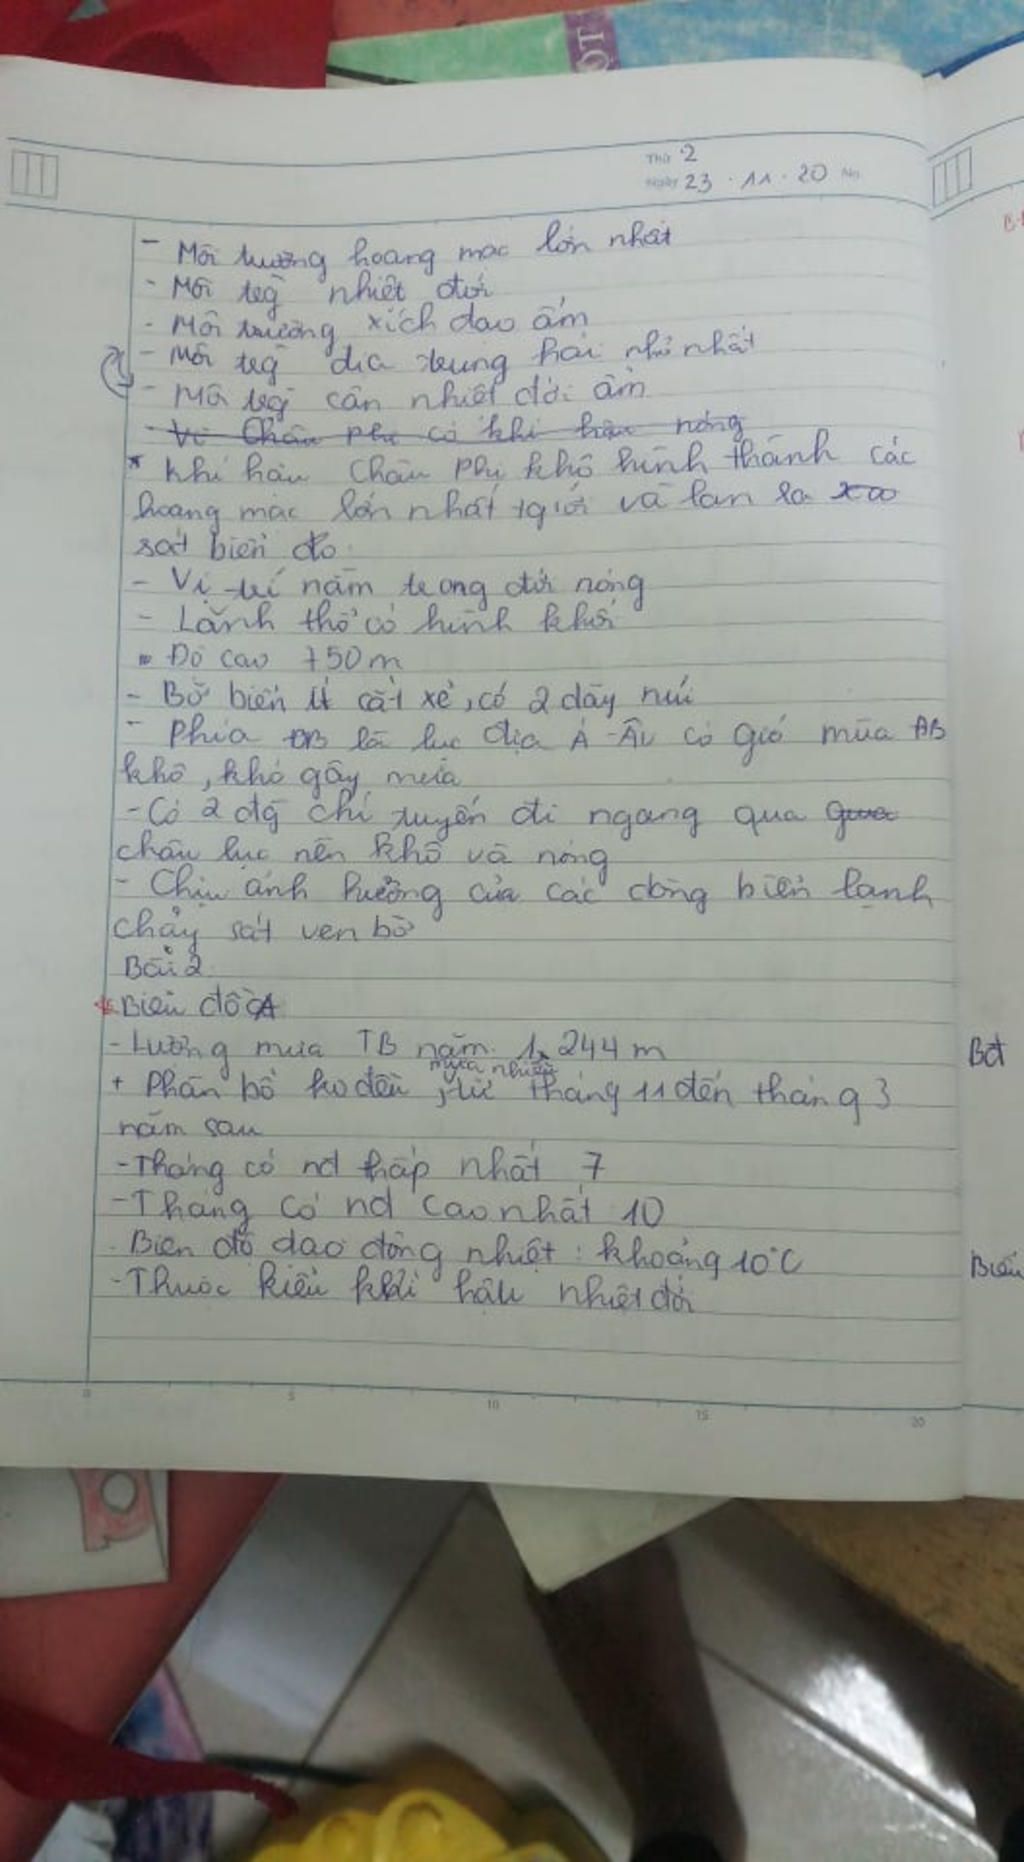 TỘ
Thứ 2
Ngày 23 . 11 . 20 No.
- Môi trường hoang mạc lớn nhất
- Môi trg nhiệt đới
- Môi trường xích đạo ẩm
- Môi trg địa trung hải nhỏ nhất
- Môi trg cận nhiệt đới ẩm
- Vì Châu Phi có khí hậu nóng
* Khí hậu Châu Phi khô hình thành các
hoang mạc lớn nhất tgiới và lan ra
sát biển do
- Vị trí nằm trong đới nóng
- Lãnh thổ có hình khối
- Độ cao 750m
- Bờ biển ít cắt xẻ, có 2 dãy núi
- Phía ĐB là lục địa Á-Âu có gió mùa ĐB
khô, khó gây mưa
- Có 2 đg chí tuyến đi ngang qua
châu lục nên khô và nóng
- Chịu ảnh hưởng của các dòng biển lạnh
chảy sát ven bờ
Bài 2
* Biểu đồ A
- Lượng mưa TB năm. 1.244m
mưa nhiều
+ Phân bố ko đều, từ tháng 11 đến tháng 3
năm sau
- Tháng có nđ thấp nhất 7
- Tháng có nđ cao nhất 10
- Biên độ dao động nhiệt: khoảng 10°C
- Thuộc kiểu khí hậu nhiệt đới
0 5 10 15 20
Bđt